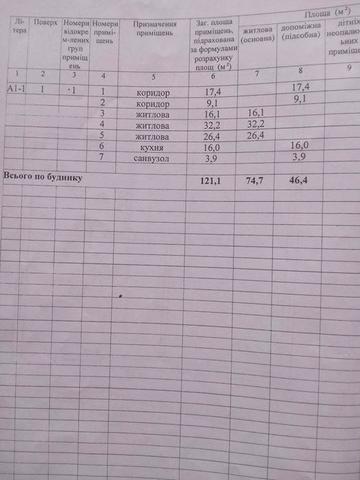 Площа (м²)
Лі-
тера
Поверх
Номери
відокре
м-лених
груп
приміщ
ень
Номери
примі-
щень
Призначення
приміщень
Заг. площа
приміщень,
підрахована
за формулами
розрахунку
площ (м²)
житлова
(основна)
допоміжна
(підсобна)
літніх
неопалю
приміще
1 2 3 4 5 6 7 8 9
А1-1 1 1 1 коридор 17,4 17,4
2 коридор 9,1 9,1
3 житлова 16,1 16,1
4 житлова 32,2 32,2
5 житлова 26,4 26,4
6 кухня 16,0 16,0
7 санвузол 3,9 3,9
Всього по будинку 121,1 74,7 46,4